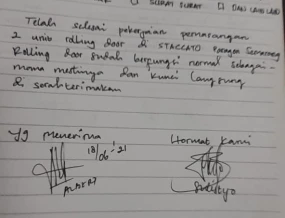 SURAT SURAT
Telah selesai pekerjaan pemasangan
2 unit rolling door di STACCATO Semarang
Rolling door sudah berfungsi normal sebagai-
mana mestinya dan kunci langsung
di serah terimakan
Yg menerima
Hormat kami
18/06 - '21
ALBERT
Sulistyo